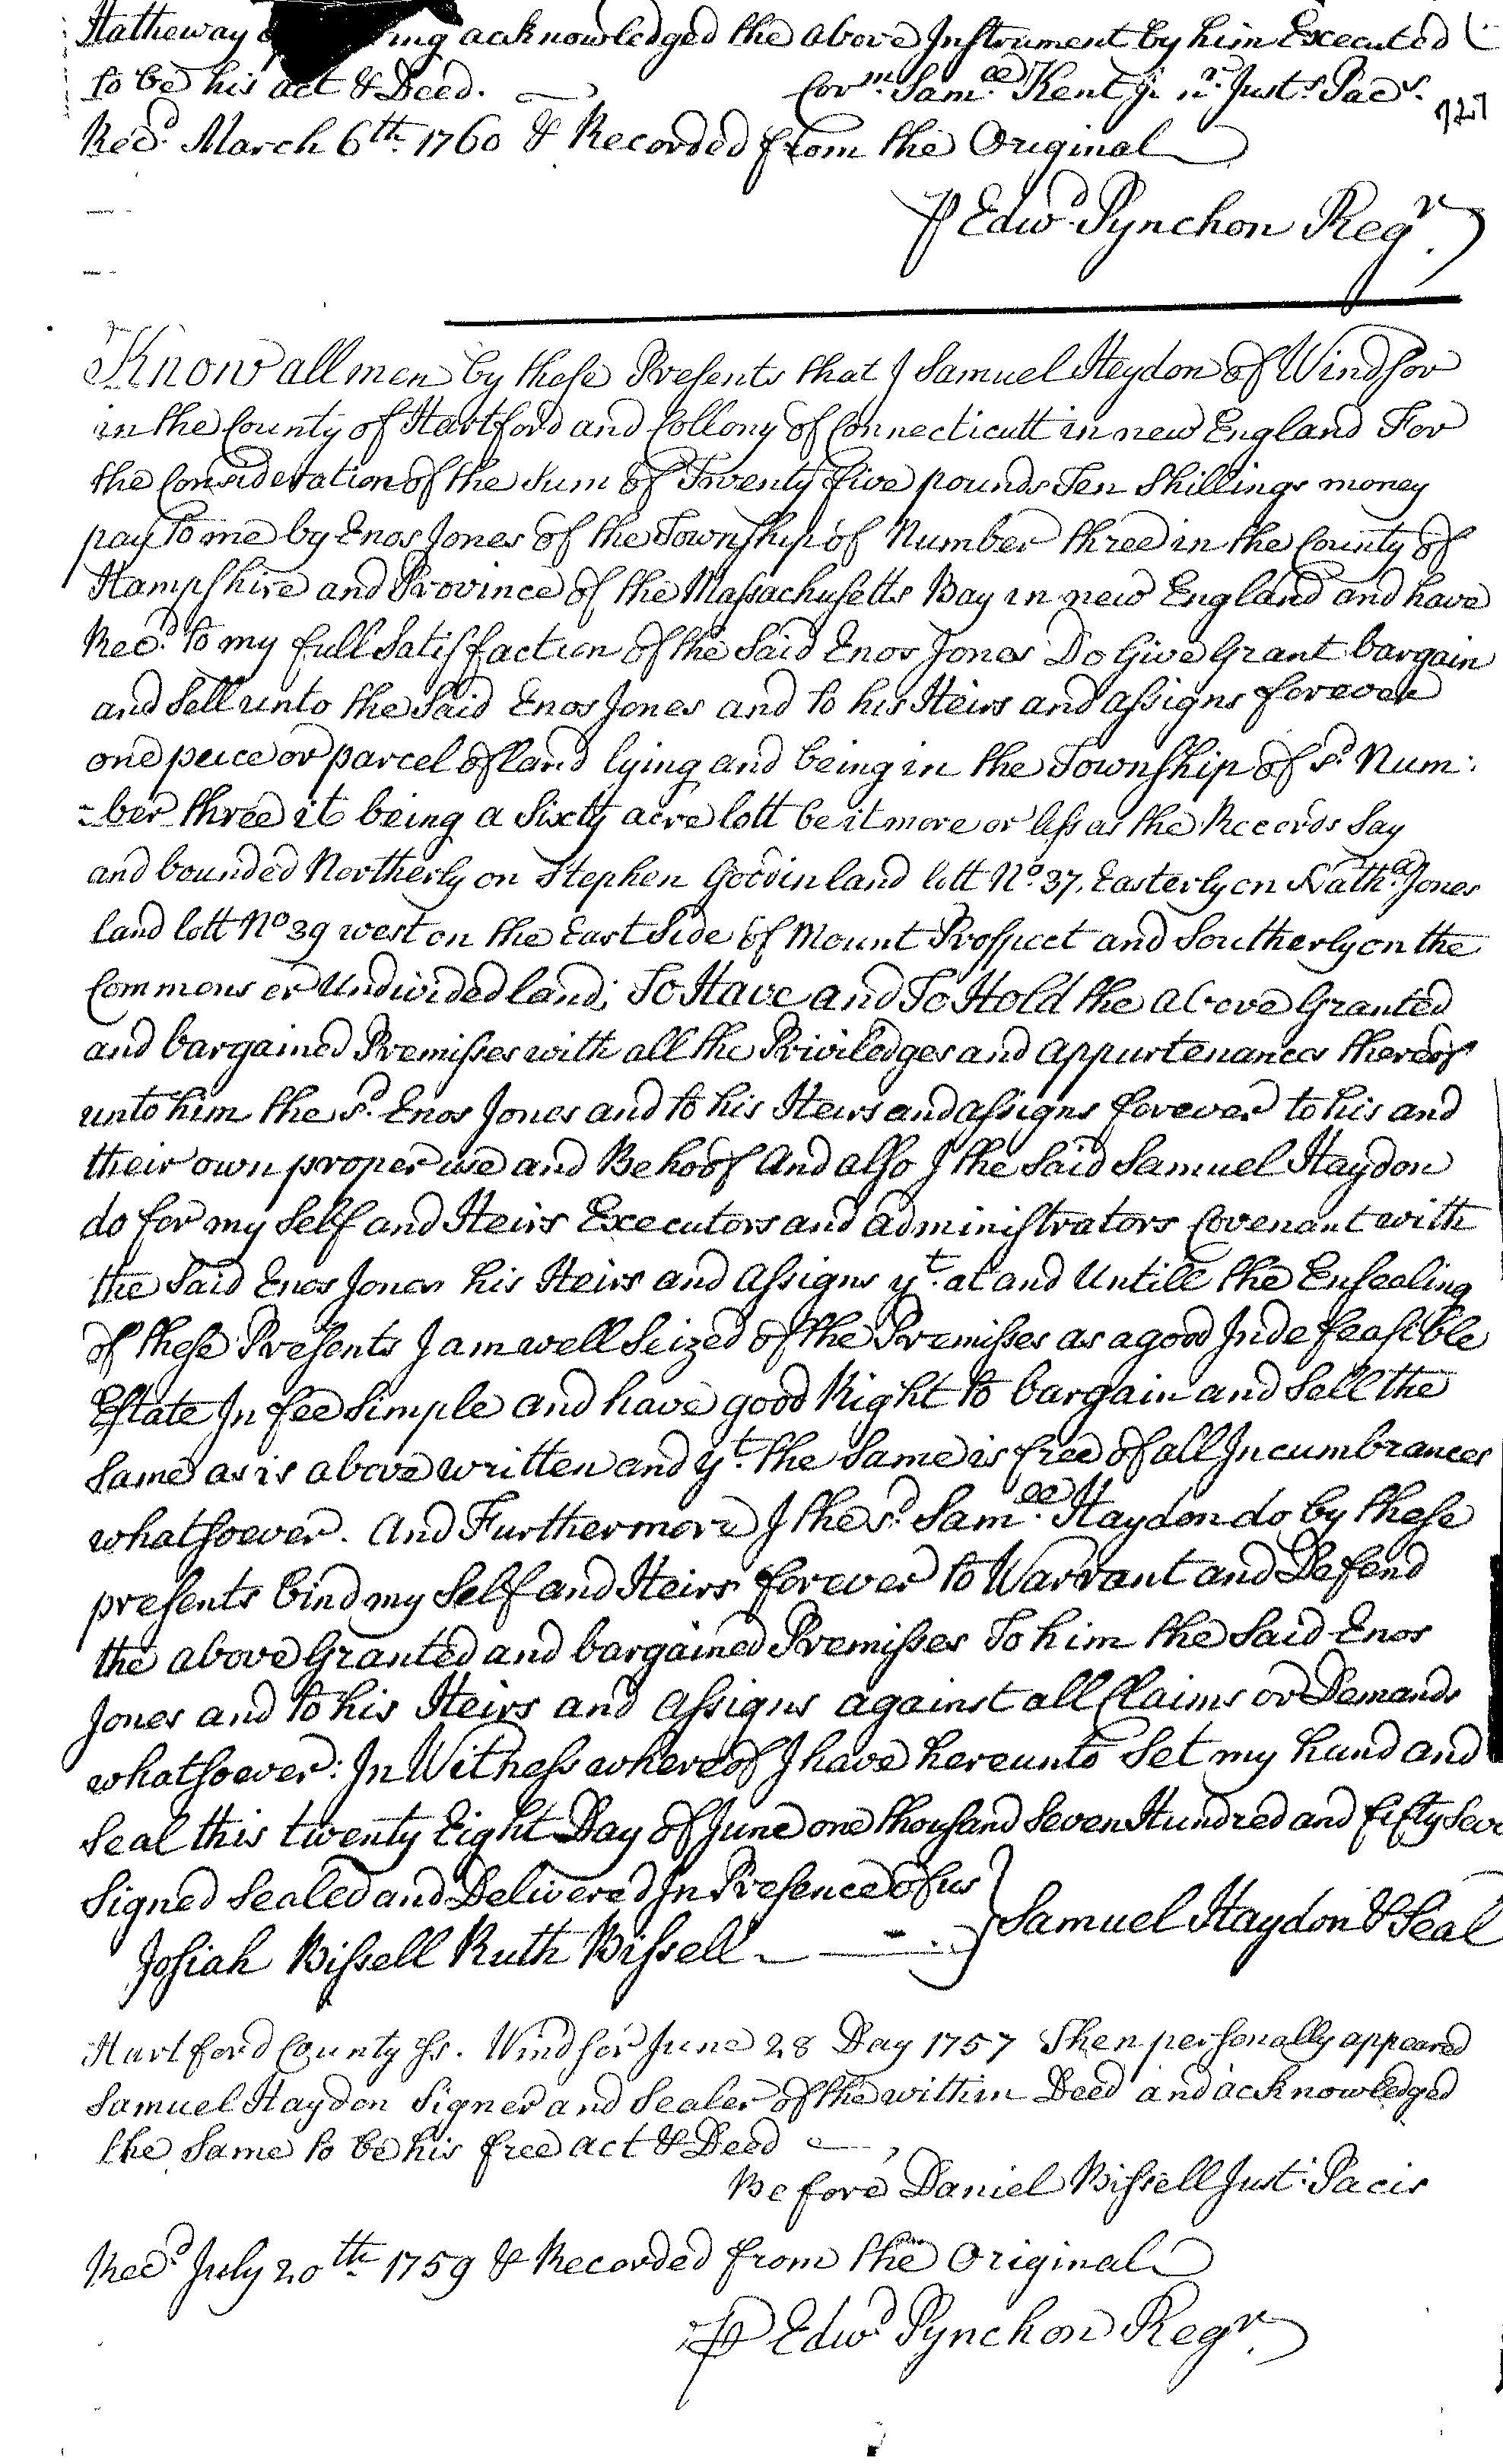 Hatheway acknowledged the above Instrument by him Executed
to be his act & Deed. Cor.m Sam.ll Kent Just.s Pacs.
Rec.d March 6th 1760 & Recorded from the Original
P Edw.d Pynchon Reg.r
Know all men by these Presents that I Samuel Heydon of Windsor
in the County of Hartford and Collony of Connecticutt in new England For
the Consideration of the Sum of Twenty five pounds Ten Shillings money
pay to me by Enos Jones of the Township of Number three in the County of
Hampshire and Province of the Massachusetts Bay in new England and have
Rec.d to my full Satisfaction of the Said Enos Jones Do Give Grant bargain
and Sell unto the Said Enos Jones and to his Heirs and assigns forever
one peice or parcel of land lying and being in the Township of s.d Num:
-ber three it being a Sixty acre lott be it more or less as the Records Say
and bounded Northerly on Stephen land lott No. 37, Easterly on Nath.ll Jones
land lott No 39 west on the East Side of Mount Prospect and Southerly on the
Commons or Undivided land; To Have and To Hold the above Granted
and bargained Premisses with all the Priviledges and appurtenances thereof
unto him the s.d Enos Jones and to his Heirs and assigns forever to his and
their own proper use and Behoof And also I the Said Samuel Haydon
do for my Self and Heirs Executors and administrators Covenant with
the Said Enos Jones his Heirs and assigns y.t at and Untill the Ensealing
of these Presents I am well Seized of the Premisses as a good Indefeasible
Estate In fee Simple and have good Right to bargain and Sell the
Same as is above written and y.t the Same is free of all Incumbrances
whatsoever. And Furthermore I the s.d Sam.ll Haydon do by these
presents bind my Self and Heirs forever to Warrant and Defend
the above Granted and bargained Premisses To him the Said Enos
Jones and to his Heirs and assigns against all Claims or Demands
whatsoever: In Witness whereof I have hereunto Set my hand and
Seal this twenty Eight Day of June one thousand Seven Hundred and fifty Seve
Signed Sealed and Delivered In Presence of us
Josiah Bissell Ruth Bissell } Samuel Haydon & Seal
Hartford County Ss. Windsor June 28 Day 1757 Then personally appeared
Samuel Haydon Signer and Sealer of the within Deed and acknowledged
the Same to be his free act & Deed
Before Daniel Bissell Just: Pacis
Rec.d July 20th 1759 & Recorded from the Original
P Edw.d Pynchon Reg.r